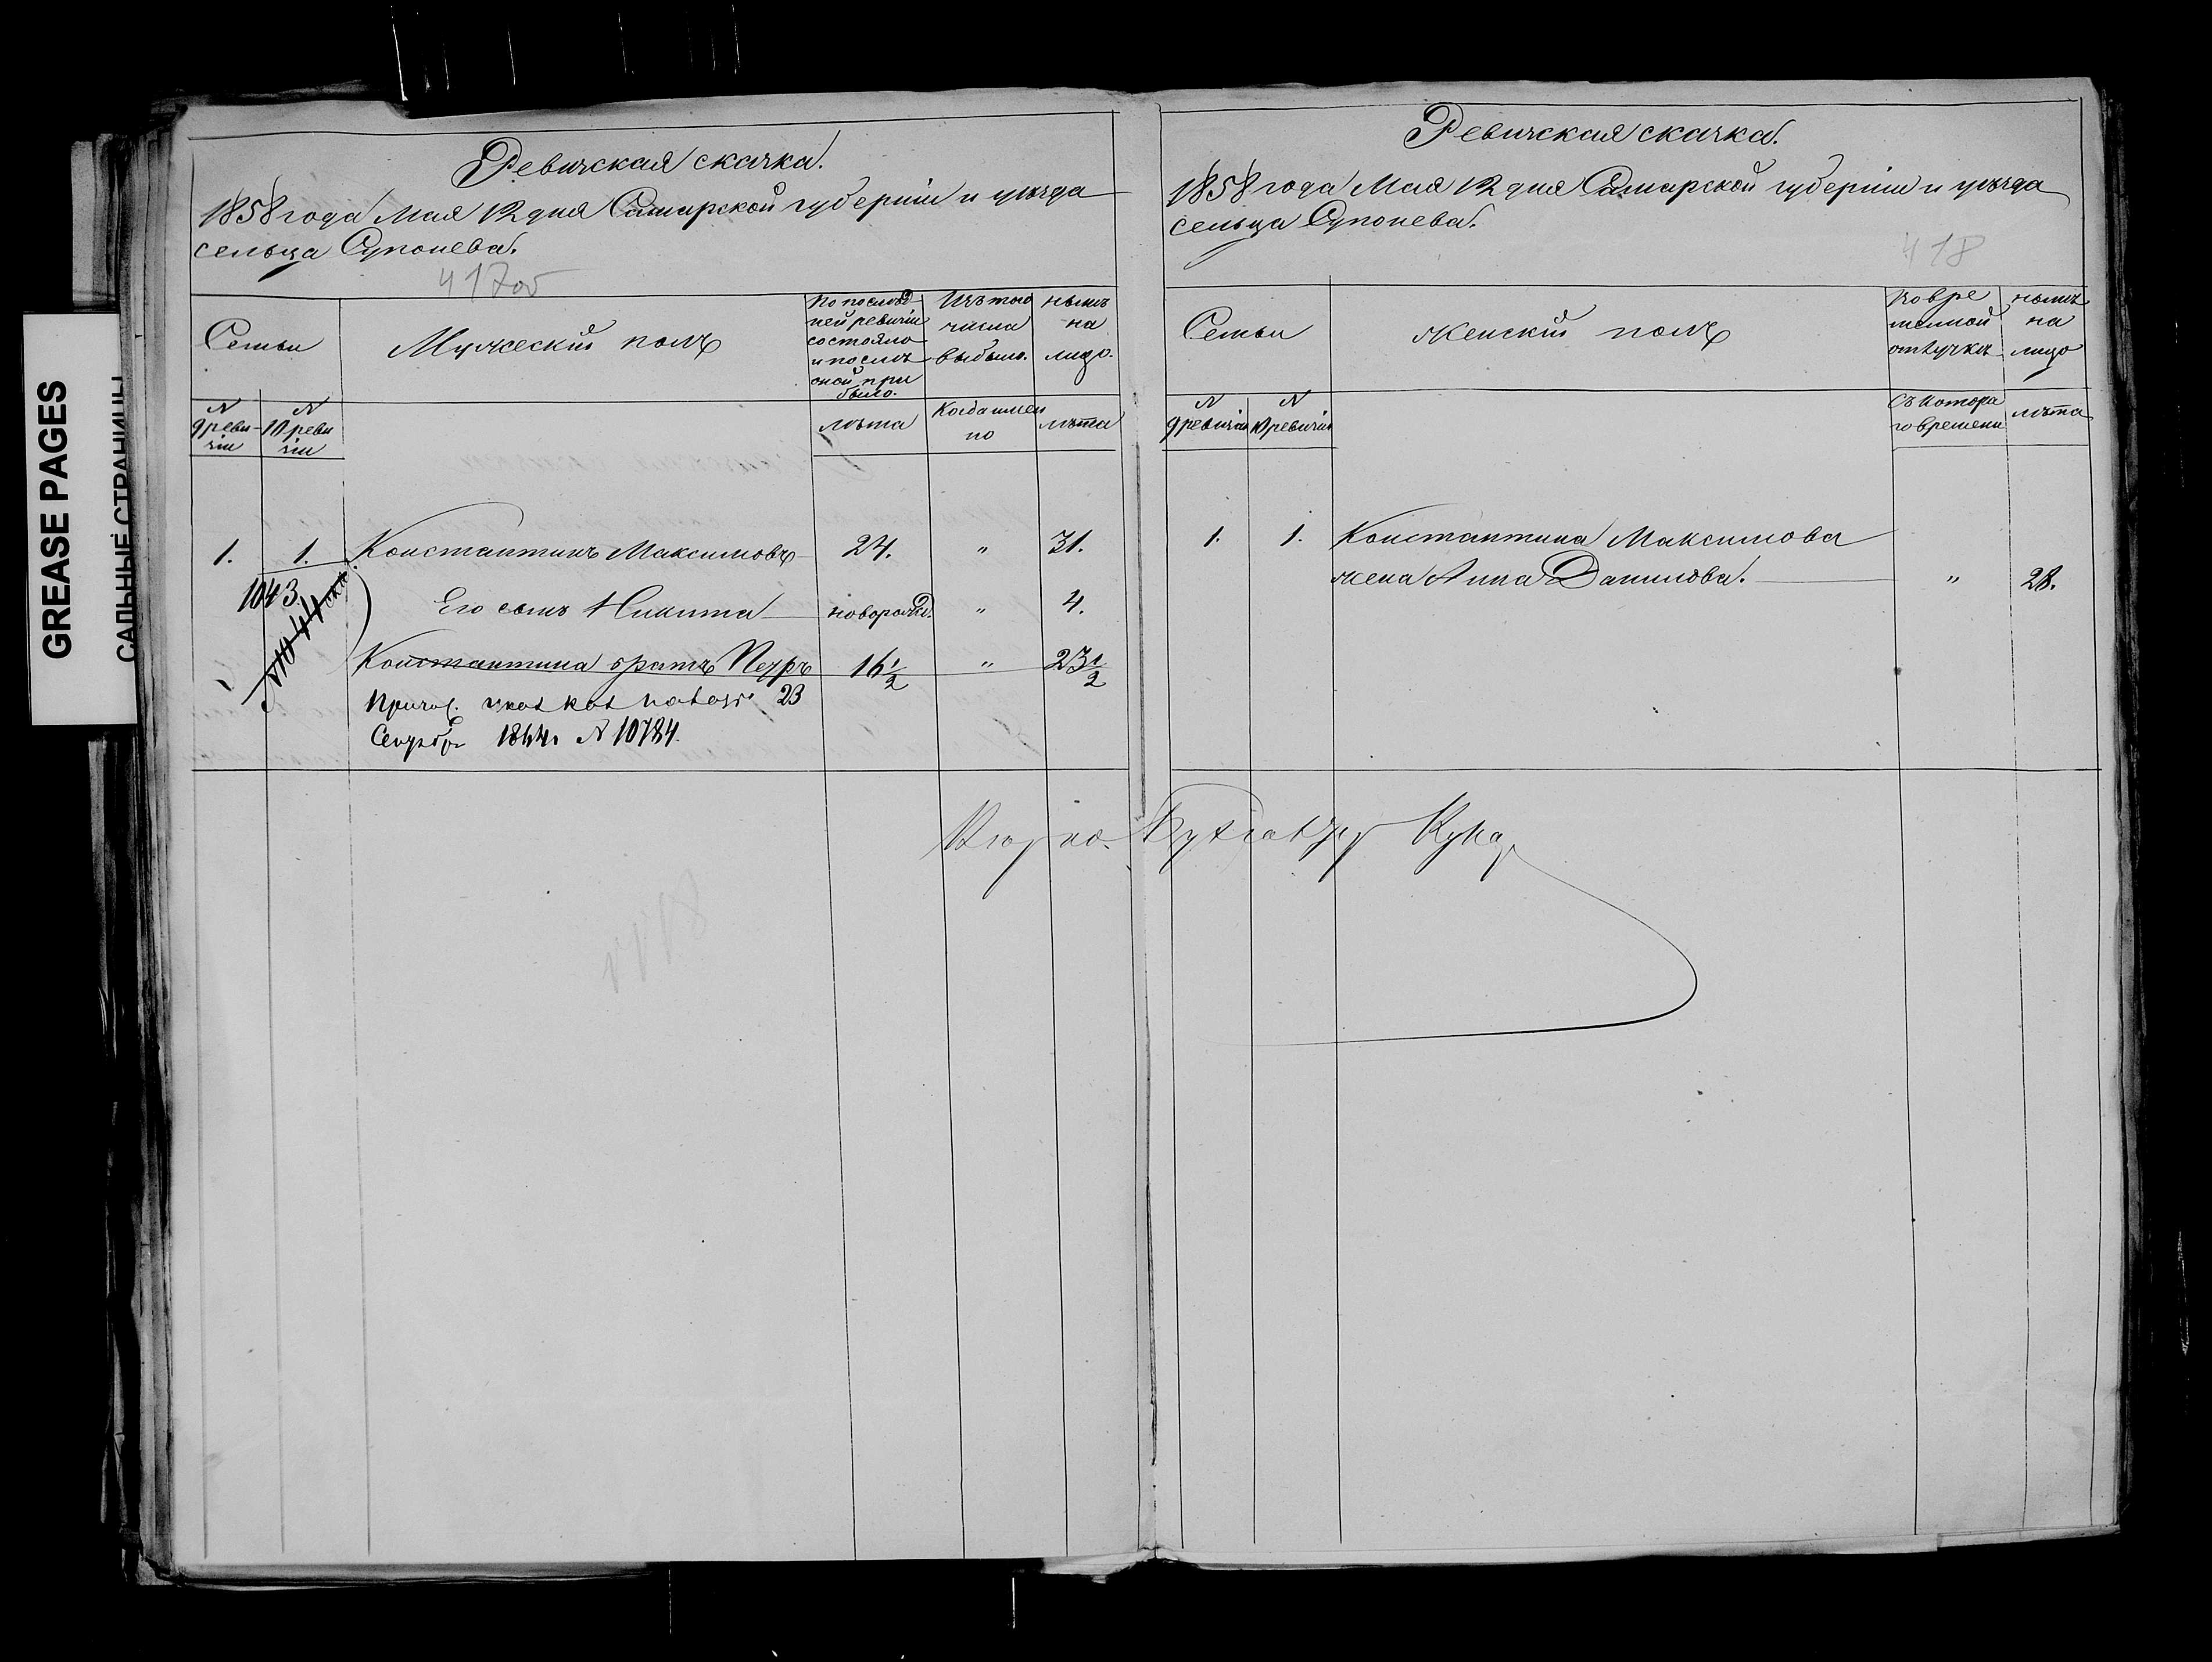 GREASE PAGES
САЛЬНЫЕ СТРАНИЦЫ
Ревизская сказка.
1858 года Мая 12 дня Самарской губерніи и уѣзда
сельца Супонева.
417об
Семьи
Мужескій полъ
По послѣд
ней ревизіи
состояло
и послѣ
оной при
было.
Изъ того
числа
выбыло.
нынѣ
на
лицо.
N
9 реви-
зіи
N
10 реви
зіи
лѣта
Когда имен
но
лѣта
1. 1. Константинъ Максимовъ 24. " 31.
1043.
Его сынъ Никита новорожд. " 4.
N 1044
Константина братъ Петръ 16 1/2 " 23 1/2
23
Сентября 1864г N 10784.
Ревизская сказка.
1858 года Мая 12 дня Самарской губерніи и уѣзда
сельца Супонева.
418
Семьи
Женскій полъ
Во вре
менной
отлучкѣ
нынѣ
на
лицо
N
9 ревизіи
N
10 ревизіи
Съ котора
го времени
лѣта
1. 1. Константина Максимова
жена Анна Данилова. " 28.